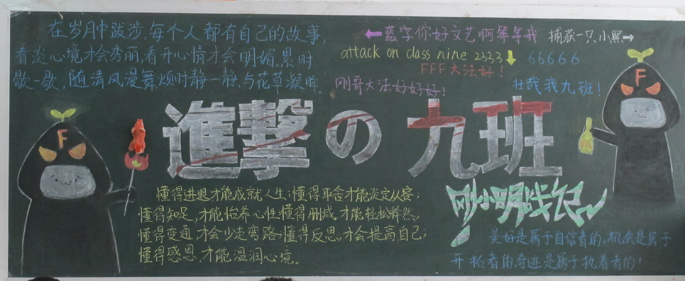 在岁月中跋涉,每个人都有自己的故事,
看淡心境才会秀丽,看开心情才会明媚,累时
歇一歇,随清风漫舞,烦时静一静,与花草凝眸。
←蓝学你好文艺啊等等我
捕获一只小黑→
attack on class nine 2333↓
66666
FFF大法好!
刚哥大法好好好!
壮哉我九班!
F
F
進撃の九班
懂得进退,才能成就人生;懂得取舍,才能淡定从容;
懂得知足,才能怡养心性;懂得删减,才能轻松释然;
懂得变通,才会少走弯路;懂得反思,才会提高自己;
懂得感恩,才能温润心境。
刚小明战记
美好是属于自信者的,机会是属于
开拓者的,奇迹是属于执着者的!